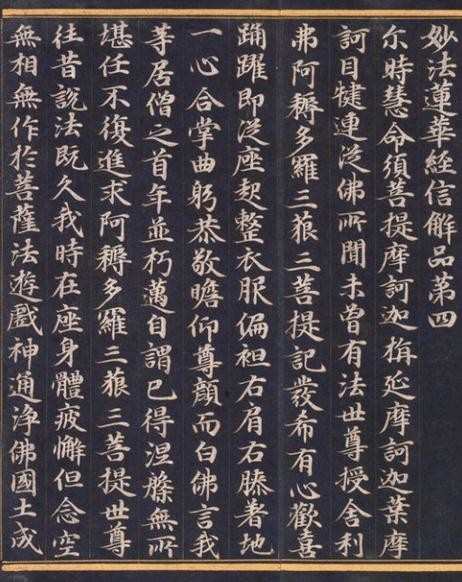 妙法蓮華經信解品第四
尒時慧命須菩提摩訶迦栴延摩訶迦葉摩
訶目揵連從佛所聞未曾有法世尊授舍利
弗阿耨多羅三藐三菩提記發希有心歡喜
踊躍即從座起整衣服偏袒右肩右膝著地
一心合掌曲躬恭敬瞻仰尊顏而白佛言我
等居僧之首年並朽邁自謂已得涅槃無所
堪任不復進求阿耨多羅三藐三菩提世尊
往昔說法既久我時在座身體疲懈但念空
無相無作於菩薩法遊戲神通淨佛國土成